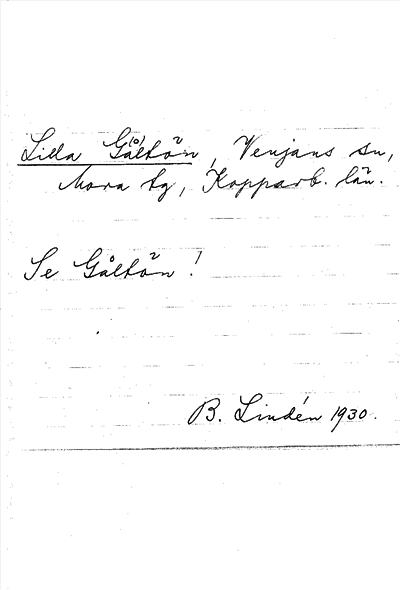 Lilla Gåltön, Venjans sn,
Mora tg, Kopparb. län.
Se Gåltön!
B. Lindén 1930.